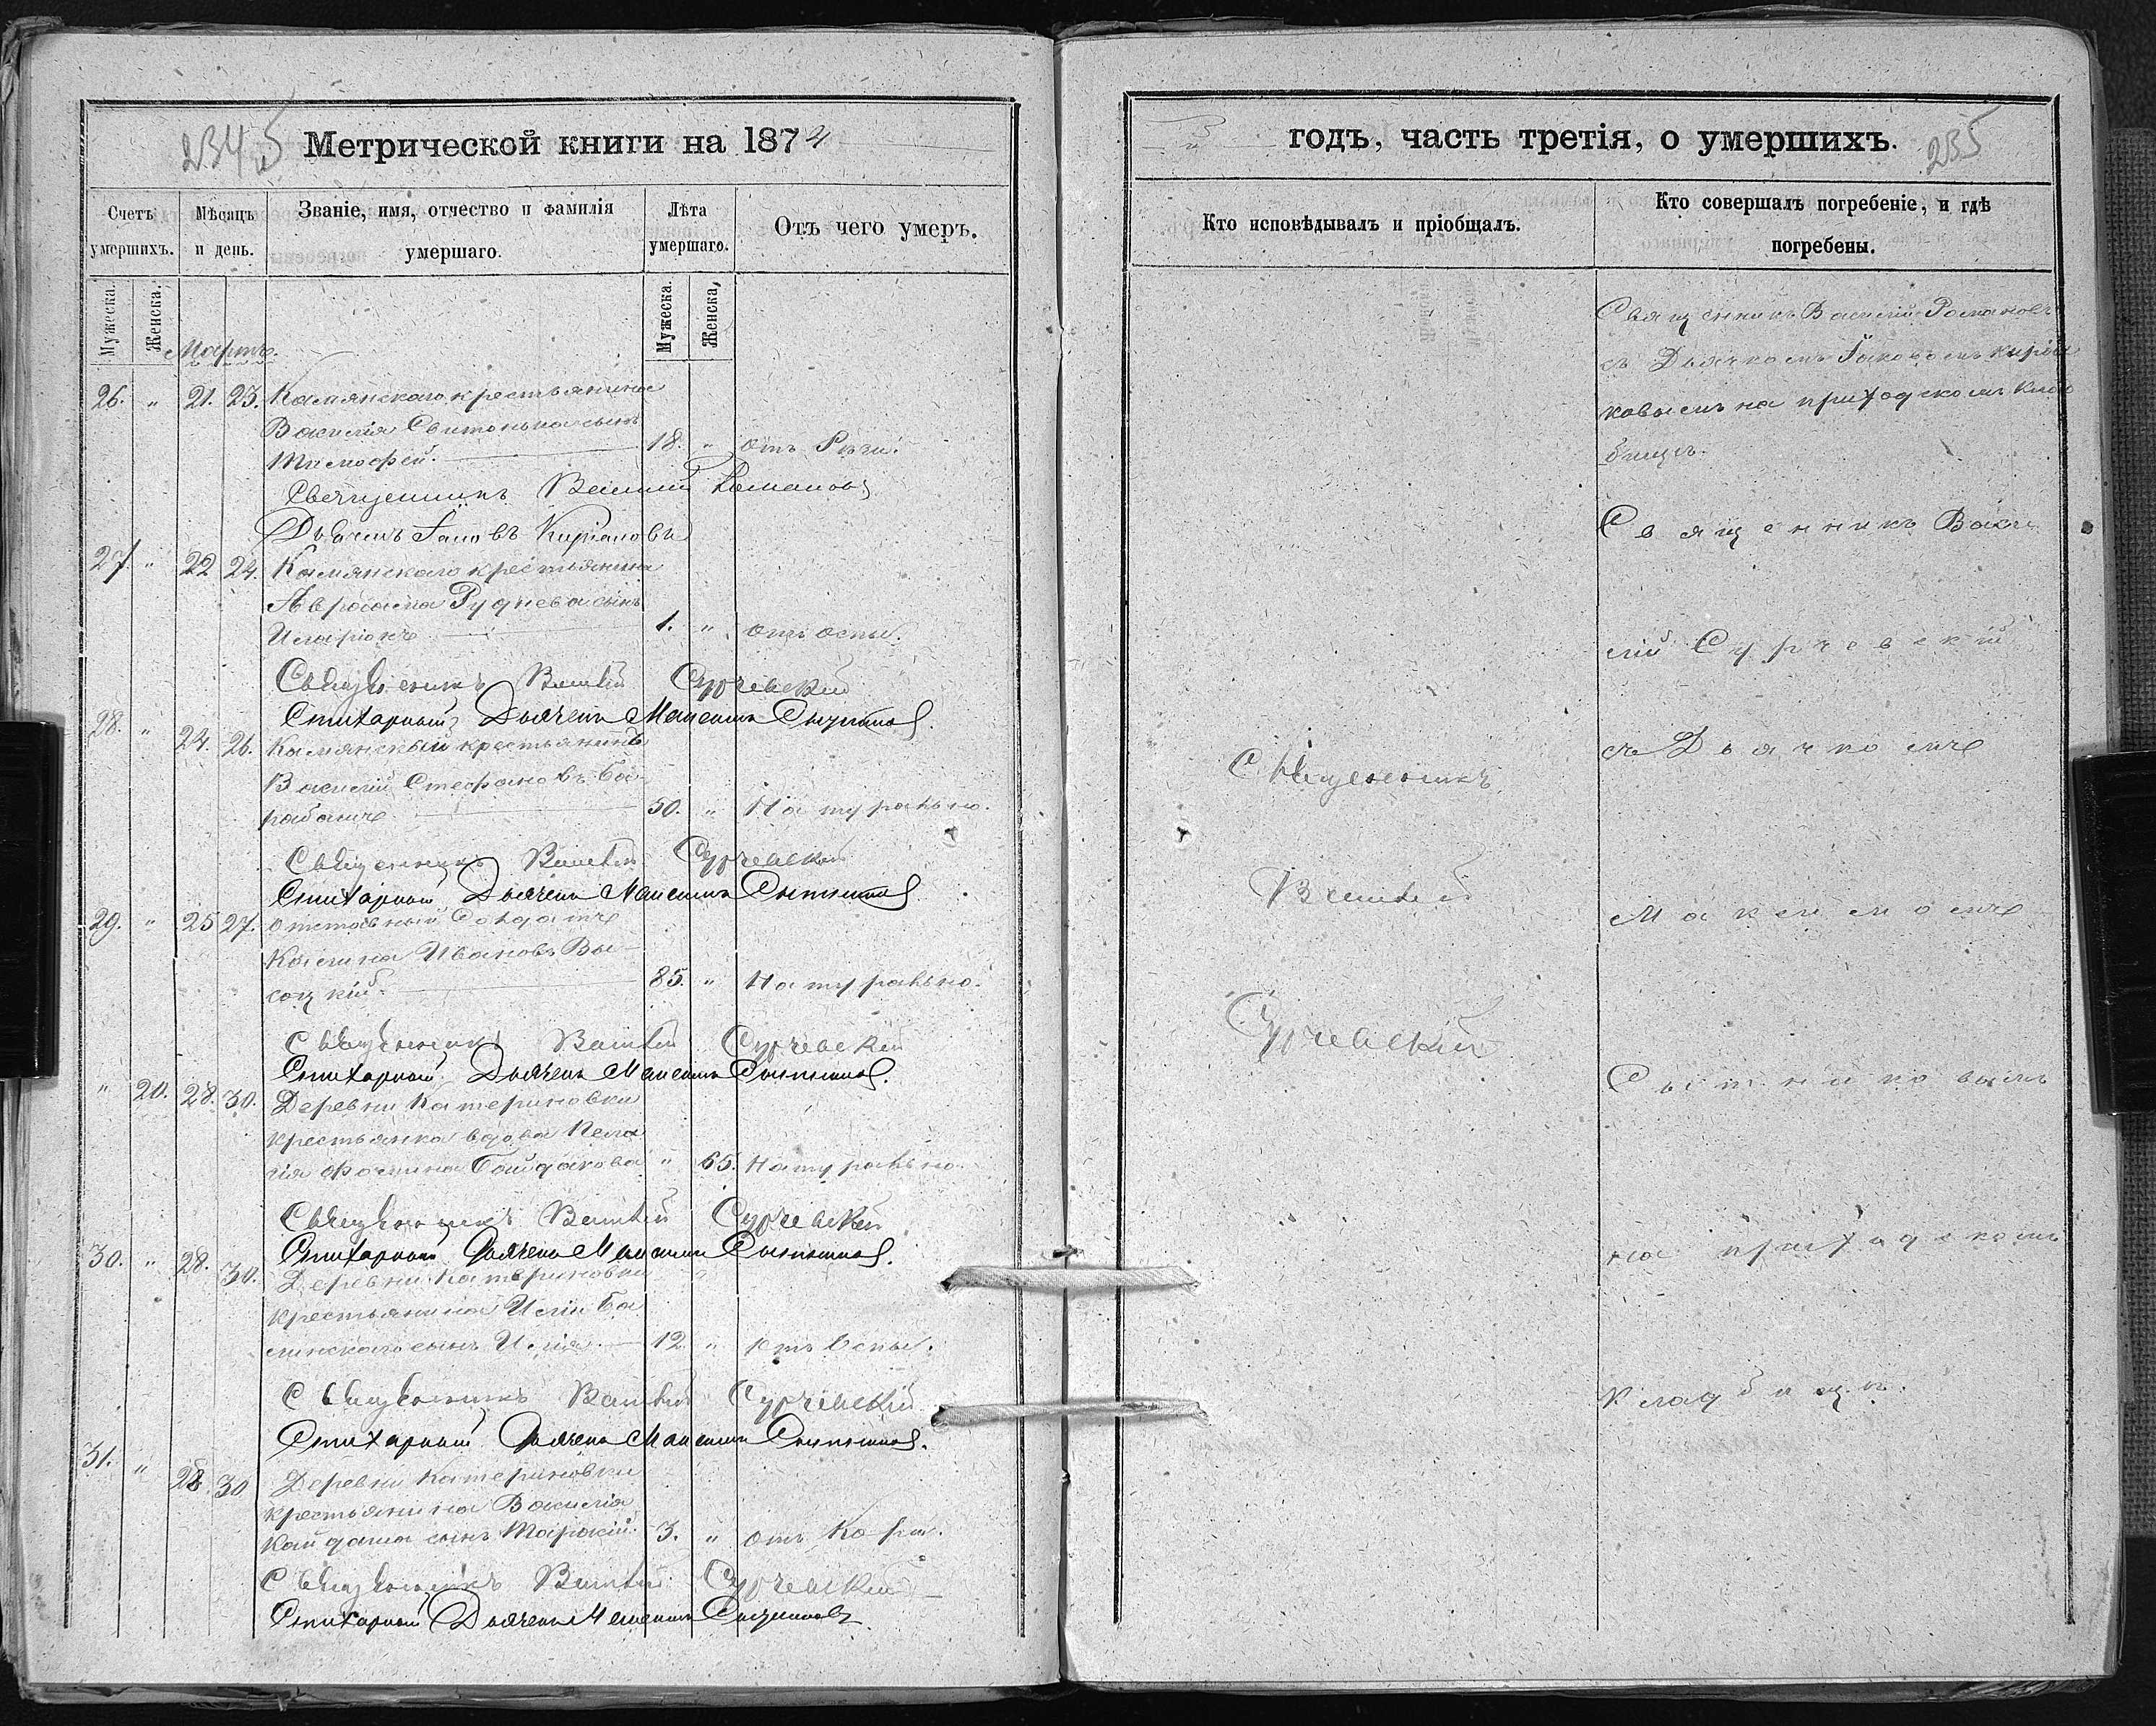 2345
Метрической книги на 1874
Счетъ умершихъ.
Мѣсяцъ и день.
Званіе, имя, отчество и фамилія умершаго.
Лѣта умершаго.
Отъ чего умеръ.
Мужеска.
Женска.
Мужеска.
Женска,
Мартъ.
26. " 21. 23. Камянскаго крестьянина
Василія сынъ
Тимофей. 18. "
Священникъ Василій Романовъ
Дьячекъ Іаковъ
27. " 22 24. Камянскаго крестьянина
Авраама Руднева сынъ
Иларіонъ 1. " отъ оспы.
Священникъ Василій Сурчевскій
Стихарный Дьячекъ Максимъ Сытниковъ.
28. " 24. 26. Камянскый крестьянинъ
Василій Стефановъ Ба-
рабашъ 50. " Натурально.
Священникъ Василій Сурчевскій
Стихарный Дьячекъ Максимъ Сытниковъ.
29. " 25 27. отставный Солдатъ
Ивановъ Вы-
соцкій. 85. " Натурально.
Священникъ Василій Сурчевскій
Стихарный Дьячекъ Максимъ Сытниковъ.
" 20. 28. 30. Деревни Катериновки
крестьянка вдова Пела
гія Фомина Байдакова " 65. Натурально.
Священникъ Василій Сурчевскій
Стихарный Дьячекъ Максимъ Сытниковъ.
30. " 28. 30. Деревни Катериновки
крестьянина Иліи Ба
линскаго сынъ Илія. 12 " отъ Оспы.
Священникъ Василій Сурчевскій
Стихарный Дьячекъ Максимъ Сытниковъ.
31. " 28. 30 Деревни Катериновки
крестьянина Василія
Кайдаша сынъ Тарасій. 3. " отъ Кори.
Священникъ Василій Сурчевскій
Стихарный Дьячекъ Максимъ Сытниковъ
годъ, часть третія, о умершихъ.
235
Кто исповѣдывалъ и пріобщалъ.
Кто совершалъ погребеніе, и гдѣ погребены.
Священникъ
Василій
Сурчевскій
Священникъ Василій Романовъ
съ Дьячкомъ Іаковомъ
на приходскомъ клад
бищѣ.
Священникъ Васи
лій Сурчевскій
съ Дьячкомъ
Максимомъ
Сытниковымъ
на приходскомъ
кладбищѣ.